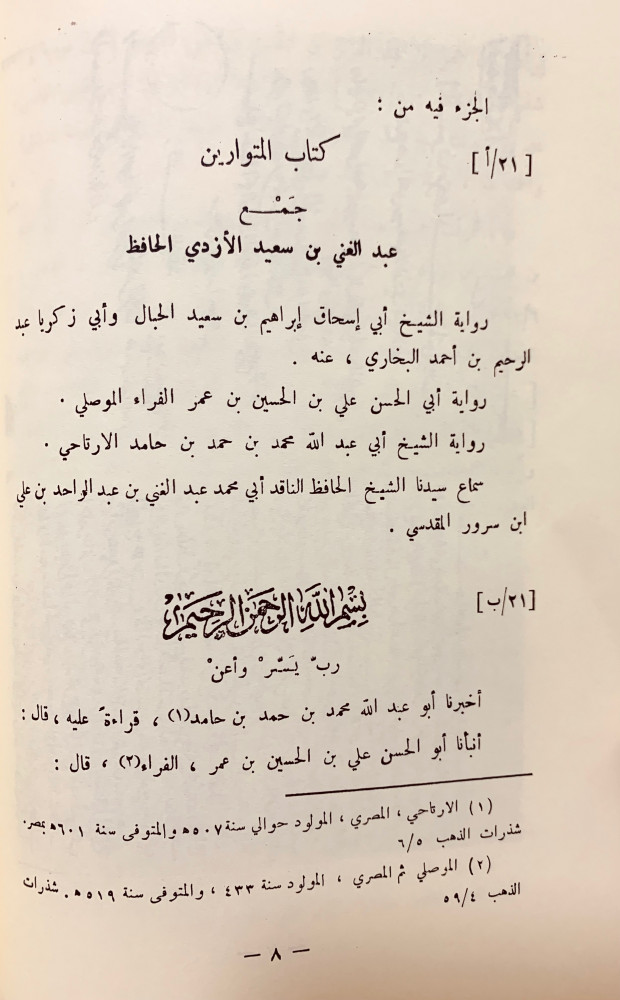 الجزء فيه من :
[٢١/أ]
كتاب المتوارين
جَمْـــع
عبد الغني بن سعيد الأزدي الحافظ
رواية الشيخ أبي إسحاق إبراهيم بن سعيد الحبال وأبي زكريا عبد
الرحيم بن أحمد البخاري ، عنه .
رواية أبي الحسن علي بن الحسين بن عمر الفراء الموصلي .
رواية الشيخ أبي عبد الله محمد بن حمد بن حامد الارتاحي .
سماع سيدنا الشيخ الحافظ الناقد أبي محمد عبد الغني بن عبد الواحد بن علي
ابن سرور المقدسي .
[٢١/ب]
بسم الله الرحمن الرحيم
ربّ يَسّرْ وأعنْ
أخبرنا أبو عبد الله محمد بن حمد بن حامد(١) ، قراءةً عليه ، قال :
أنبأنا أبو الحسن علي بن الحسين بن عمر ، الفراء(٢) ، قال :
(١) الارتاحي ، المصري ، المولود حوالي سنة ٥٠٧ ه والمتوفى سنة ٦٠١ ه بمصر.
شذرات الذهب ٦/٥
(٢) الموصلي ثم المصري ، المولود سنة ٤٣٣ ، والمتوفى سنة ٥١٩ ه . شذرات
الذهب ٥٩/٤
— ٨ —